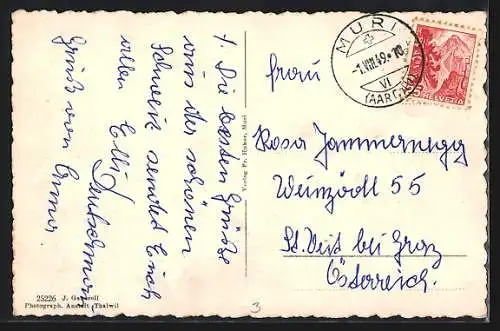 MURI
-1.VIII.49.-10
VI
(AARGAU)
HELVETIA
Frau
Rosa Jammernegg
Weinzödl 55
St. Veit bei Graz
Österreich.
1. Die besten Grüße
aus der schönen
Schweiz sendet Euch
allen Elli
Gruß von
Verlag Fr. Huber, Muri
25226 J. Gaberell
Photograph. Anstalt Thalwil
3